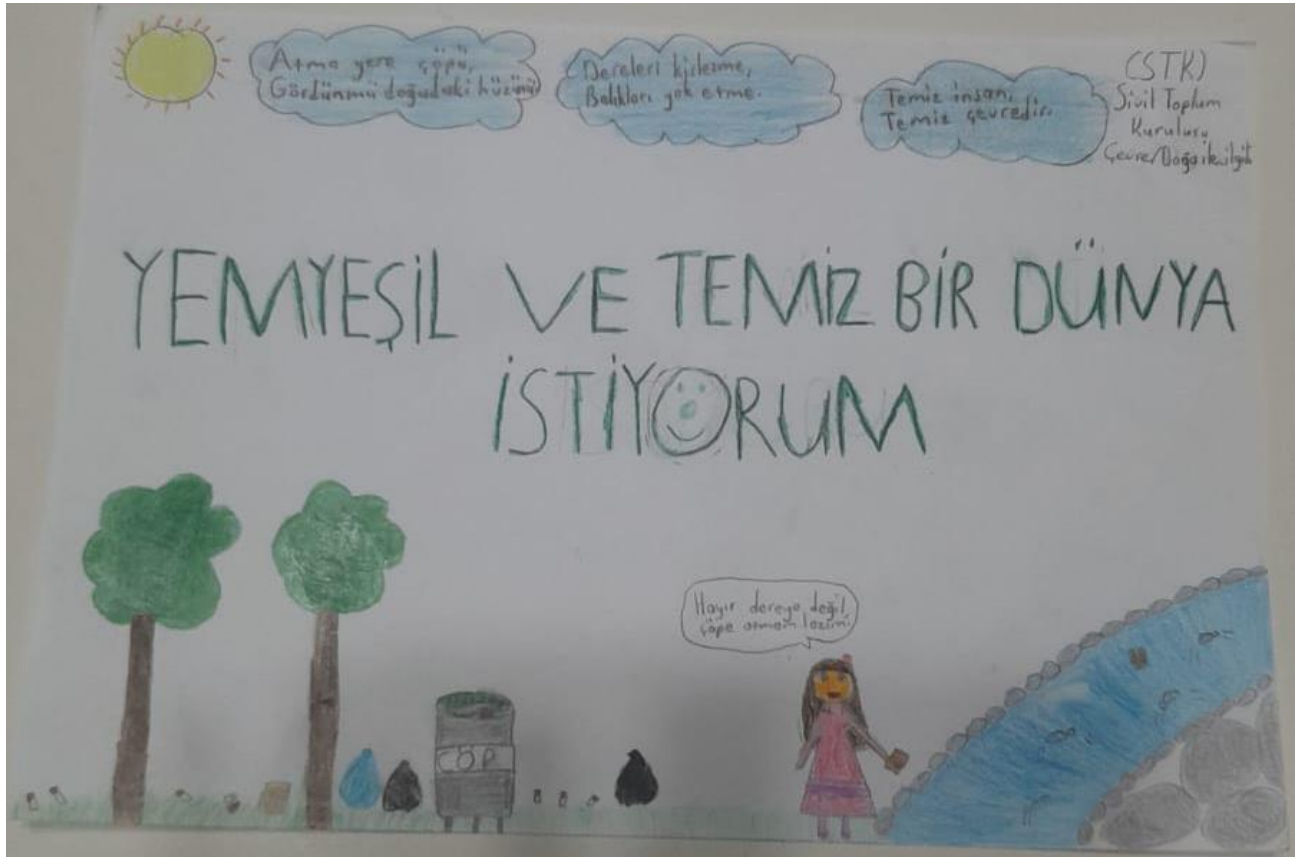 Atma yere çöpü,
Gördünmü doğadaki hüzünü
Dereleri kirletme,
Balıkları yok etme.
Temiz insan,
Temiz çevredir.
(STK)
Sivil Toplum
Kuruluşu
Çevre/Doğa ile ilgili
YEMYEŞİL VE TEMİZ BİR DÜNYA
İSTİYORUM
Hayır dereye değil,
çöpe atmam lazım
ÇÖP